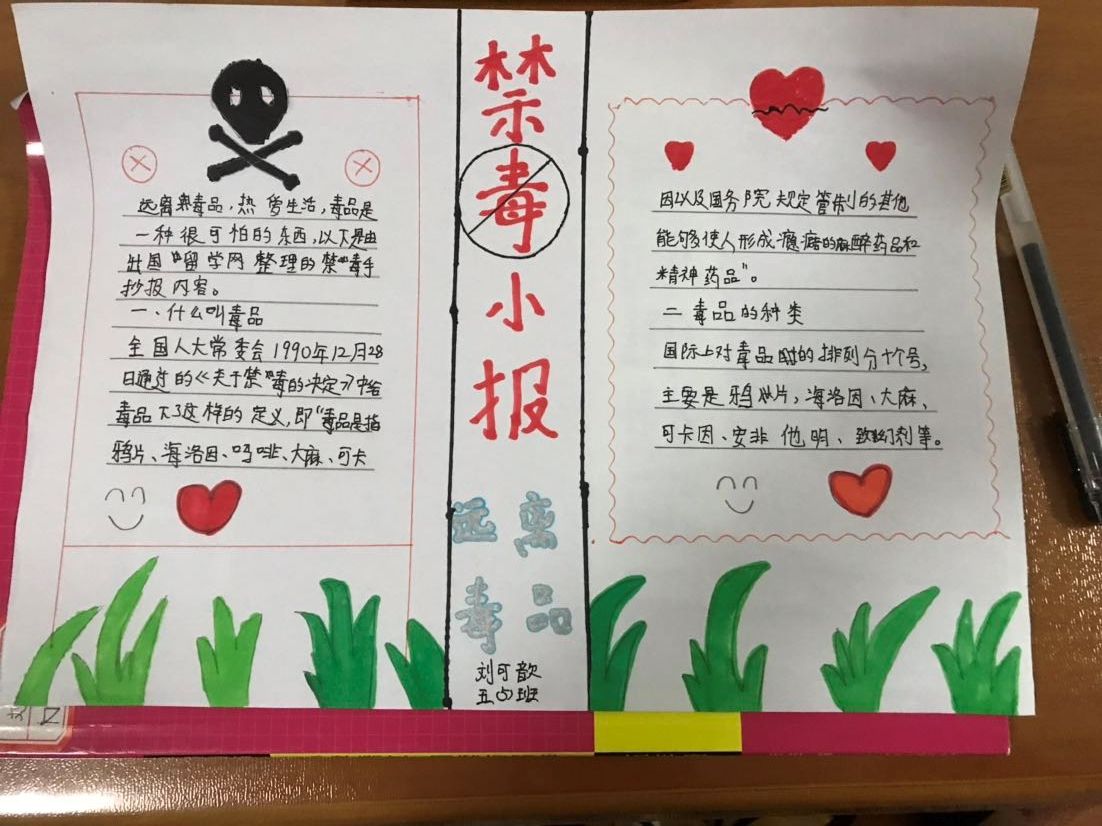 远离毒品,热爱生活,毒品是
一种很可怕的东西,以下是由
出国"留学网整理的禁"毒手
抄报内容。
一、什么叫毒品
全国人大常委会1990年12月28
日通过的《关于禁"毒的决定》中给
毒品下了这样的定义,即"毒品是指
鸦片、海洛因、吗啡、大麻、可卡
禁
毒
小
报
远离
毒品
刘可歆
五(4)班
因以及国务院规定管制的其他
能够使人形成瘾癖的麻醉药品和
精神药品"。
二毒品的种类
国际上对毒品的排列分十个号,
主要是鸦片,海洛因、大麻、
可卡因、安非他明、致幻剂等。